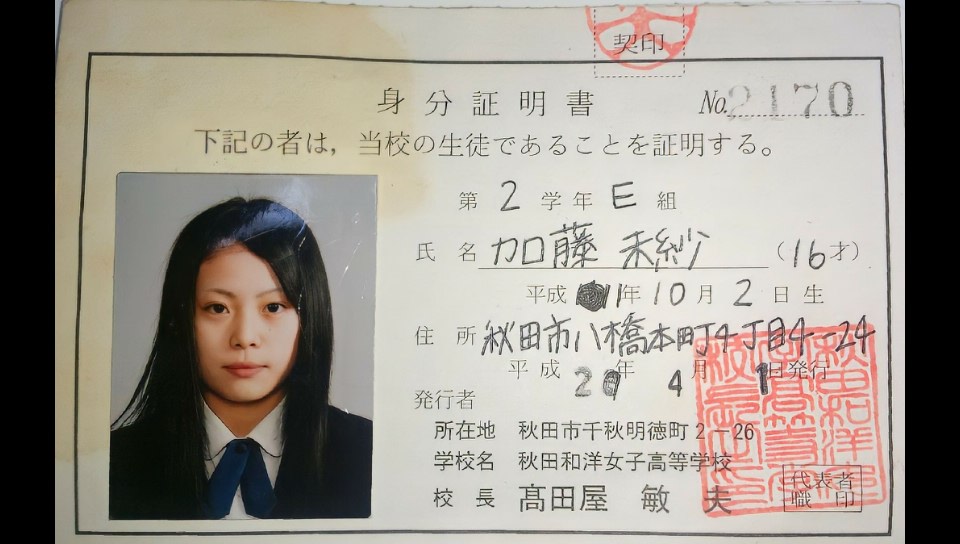 契印
身分証明書 No.2170
下記の者は，当校の生徒であることを証明する。
第 2 学年 E 組
氏名 加藤 未紗 （16才）
平成 11年 10月 2日生
住所 秋田市八橋本町4丁目4-24
平成 年 4月 1日発行
発行者
所在地 秋田市千秋明徳町2－26
学校名 秋田和洋女子高等学校
校長 髙田屋 敏夫
代表者
職印